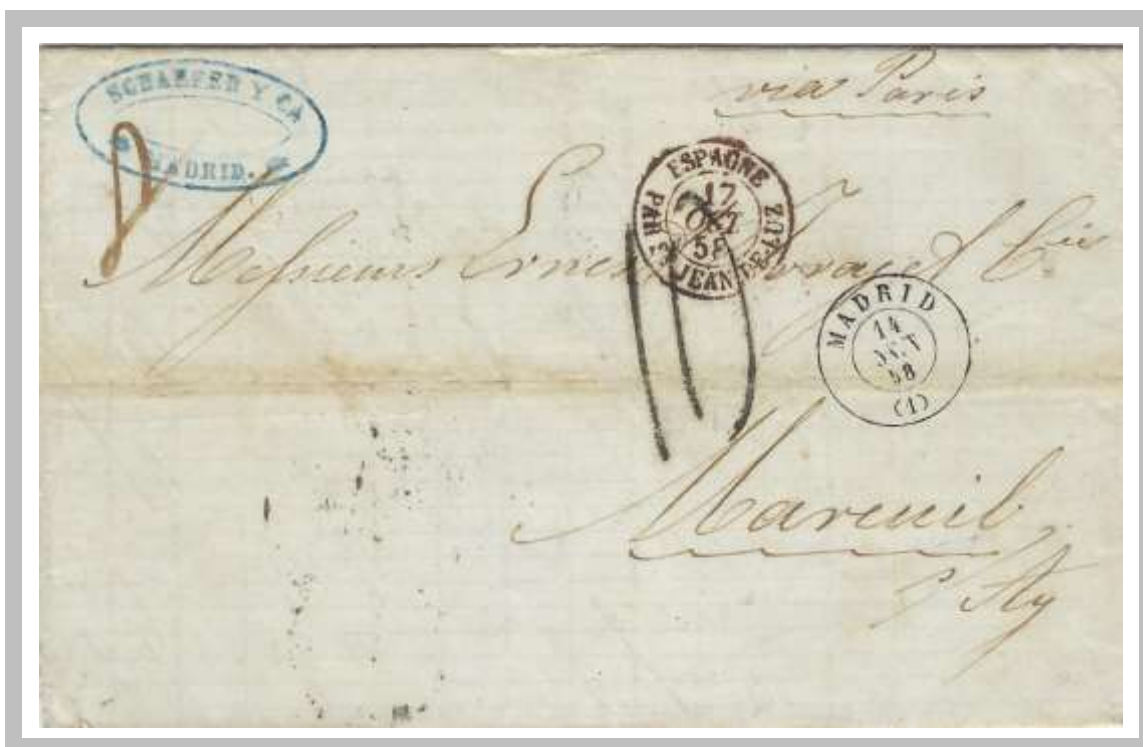 via Paris
SCHAEFER Y CA
MADRID.
ESPAGNE
17
OCT
58
PAR ST JEAN-DE-LUZ
Messieurs Ernest Irroy et Cie
MADRID
14
OCT
58
(1)
Mareuil
s/ Ay